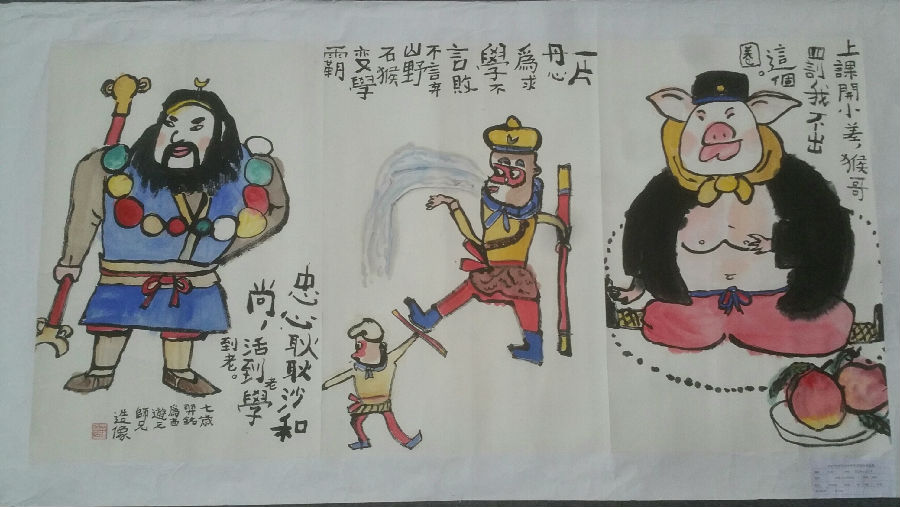 上課開小差，猴哥
罰我不出
這個
圈。
一片
丹心
爲求
學不
言敗
不言弃
山野
石猴
变學
霸
忠心耿耿沙和
尚，活到老學
到老。
七歲
羿銘
爲西
遊三
師兄
造像